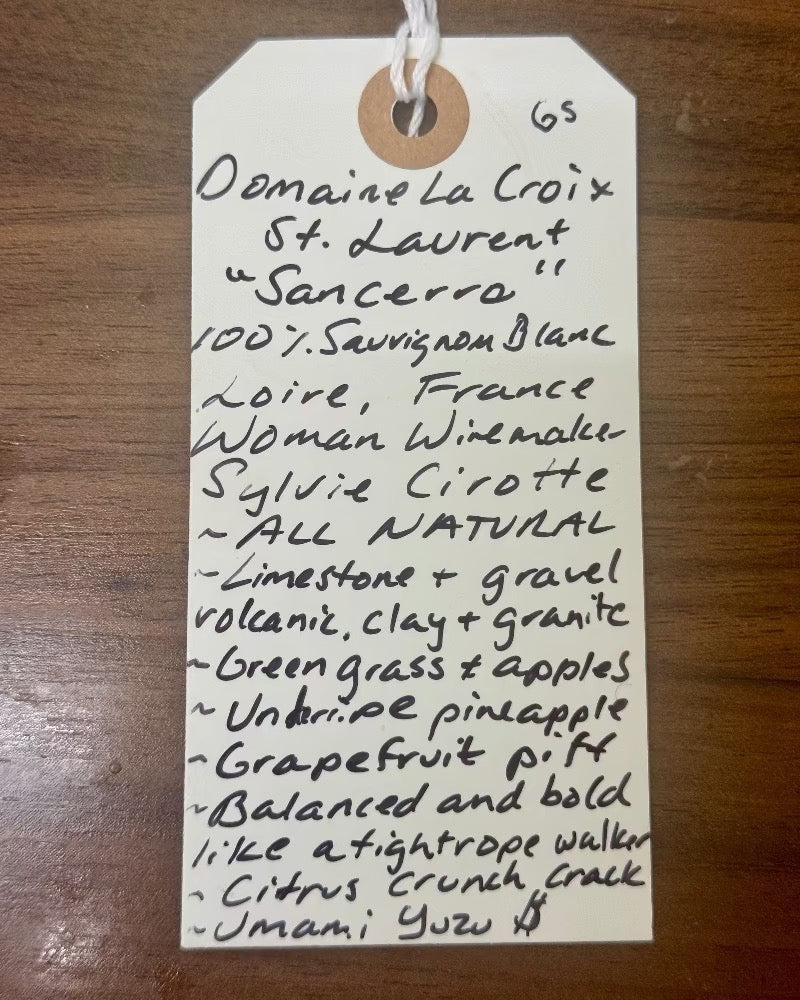 65
Domaine La Croix
St. Laurent
"Sancerre"
100% Sauvignon Blanc
Loire, France
Woman Winemaker
Sylvie Cirotte
~ ALL NATURAL
~ Limestone + gravel
volcanic, clay + granite
~ Green grass + apples
~ Underripe pineapple
~ Grapefruit pith
~ Balanced and bold
like a tightrope walker
~ Citrus crunch crack
~ Umami Yuzu $